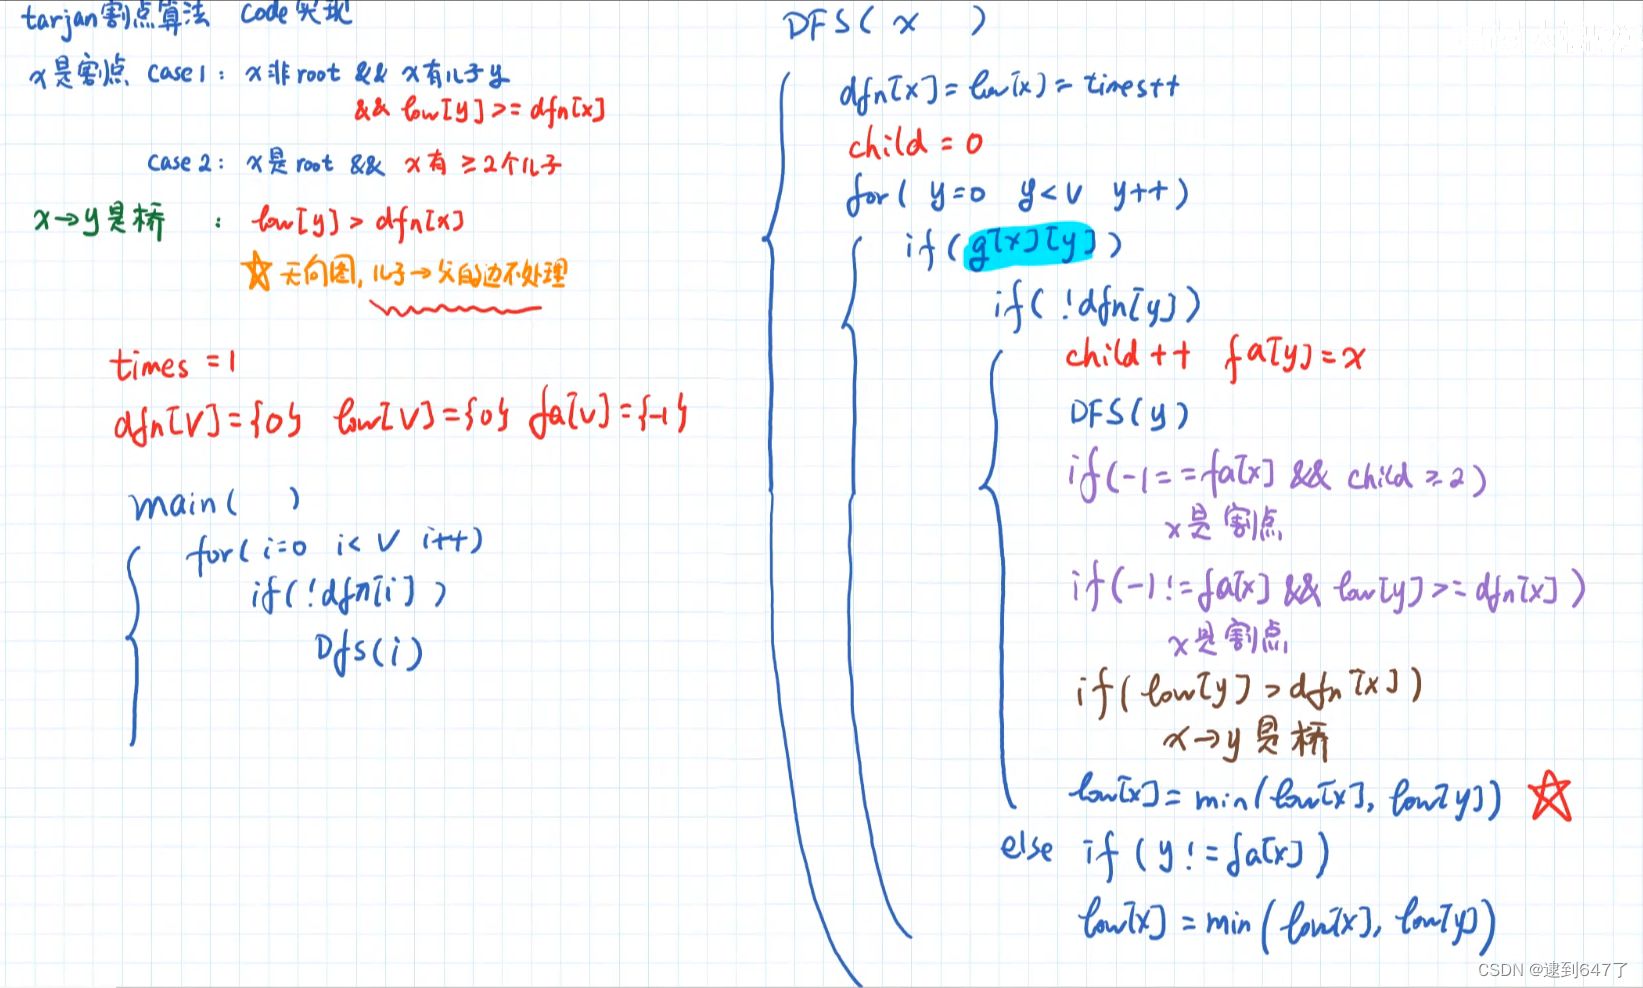 tarjan割点算法 code实现
x是割点 case1: x非root && x有儿子y
&& low[y]>=dfn[x]
case 2: x是root && x有 ≥2个儿子
x→y是桥 : low[y] > dfn[x]
☆ 无向图,儿子→父的边不处理
times =1
dfn[V]={0} low[V]={0} fa[v]={-1}
main( )
for( i=0 i< V i++)
if(!dfn[i] )
Dfs(i)
DFS( x )
dfn[x]=low[x]=times++
child = 0
for( y=0 y<V y++)
if( g[x][y] )
if( !dfn[y])
child++ fa[y]=x
DFS(y)
if(-1==fa[x] && child ≥2)
x是割点
if(-1!=fa[x] && low[y]>=dfn[x])
x是割点
if( low[y]>dfn[x])
x→y是桥
low[x]=min(low[x], low[y]) ☆
else if ( y!=fa[x])
low[x] =min(low[x], low[y])
CSDN @逮到647了